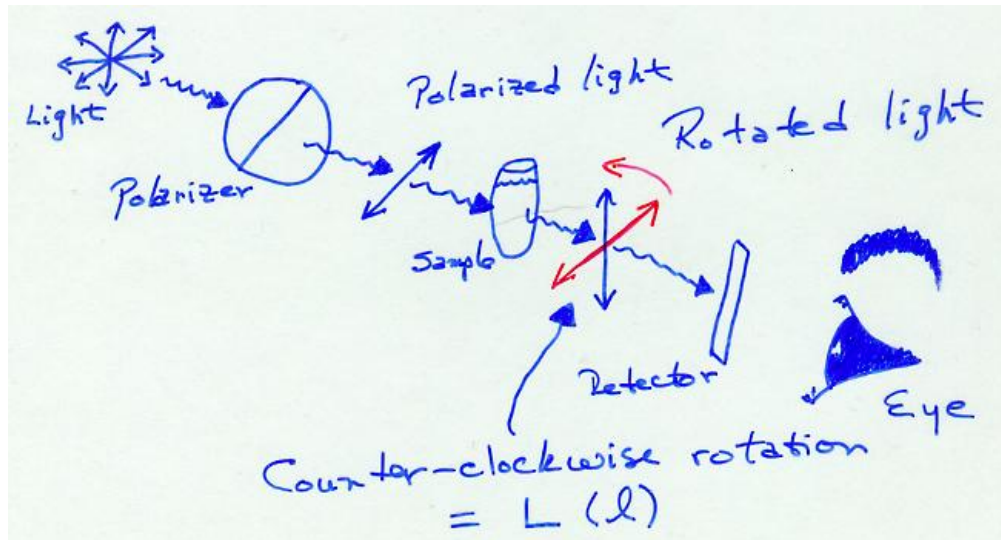 Light
Polarizer
Polarized light
Sample
Rotated light
Detector
Eye
Counter-clockwise rotation
= L (l)